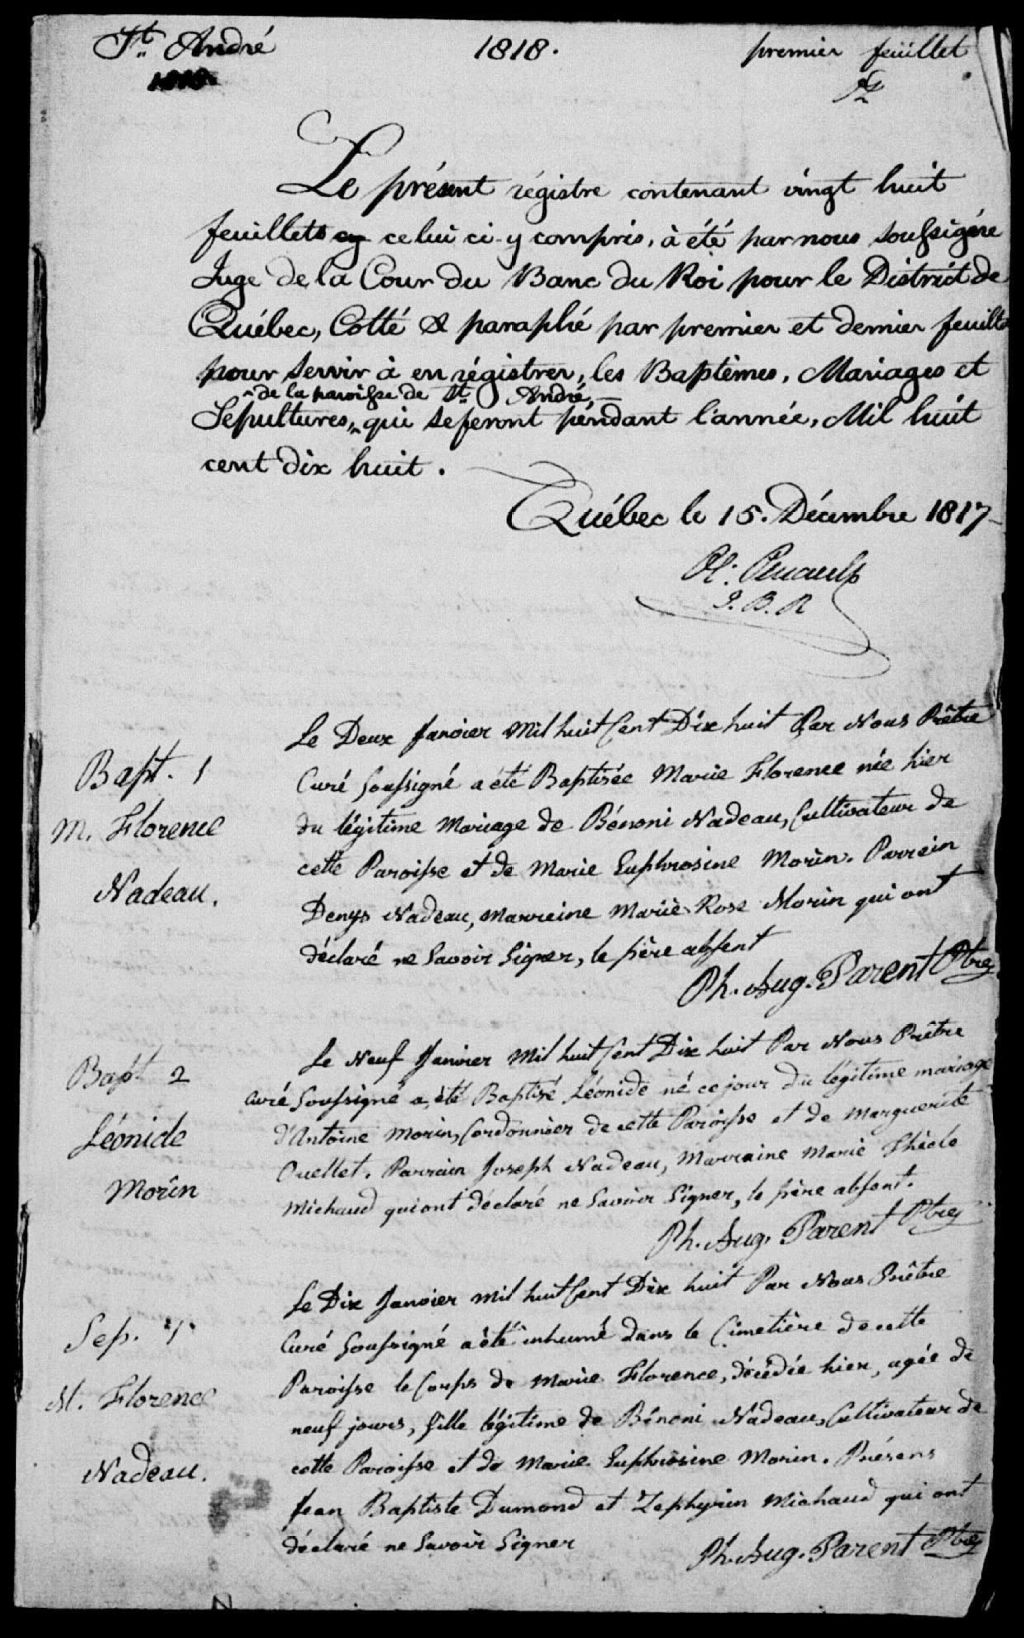 St. André
1818.
premier feuillet
1818.
Le présent régistre contenant vingt huit
feuillets celui ci y compris, à été par nous soussigné
Juge de la Cour du Banc du Roi pour le District de
Québec, Cotté & paraphé par premier et dernier feuillet
pour servir à en régistrer, les Baptêmes, Mariages et
de la paroisse de St. André,
Sépultures, qui se feront péndant l'année, Mil huit
cent dix huit.
Québec le 15. Décembre 1817
J. B. R
Bapt. 1
M. Florence
Nadeau.
Le Deux Janvier Mil huit Cent Dix huit Par Nous Prêtre
Curé Soussigné a été Baptisée Marie Florence née hier
du légitime Mariage de Bénoni Nadeau, Cultivateur de
cette Paroisse et de Marie Euphrosine Morin. Parrein
Denys Nadeau, Marreine Marie Rose Morin qui ont
déclaré ne Savoir Signer, le père absent
Ph. Aug. Parent Ptre
Bapt 2
Léonide
Morin
Le Neuf Janvier Mil huit Cent Dix huit Par Nous Prêtre
Curé Soussigné a été Baptisé Léonide né ce jour du légitime mariage
d'Antoine Morin, Cordonnier de cette Paroisse et de Marguerite
Ouellet. Parrain Joseph Nadeau, Marraine Marie Thècle
Michaud qui ont déclaré ne Savoir Signer, le père absent.
Ph. Aug. Parent Ptre
Sep. 1
M. Florence
Nadeau.
Le Dix Janvier Mil huit Cent Dix huit Par Nous Prêtre
Curé Soussigné a été inhumé dans le Cimetière de cette
Paroisse le Corps de Marie Florence, décédée hier, agée de
neuf jours, fille légitime de Bénoni Nadeau, Cultivateur de
cette Paroisse et de Marie Euphrosine Morin. Présens
Jean Baptiste Dumond et Zephyrin Michaud qui ont
déclaré ne Savoir Signer
Ph. Aug. Parent Ptre